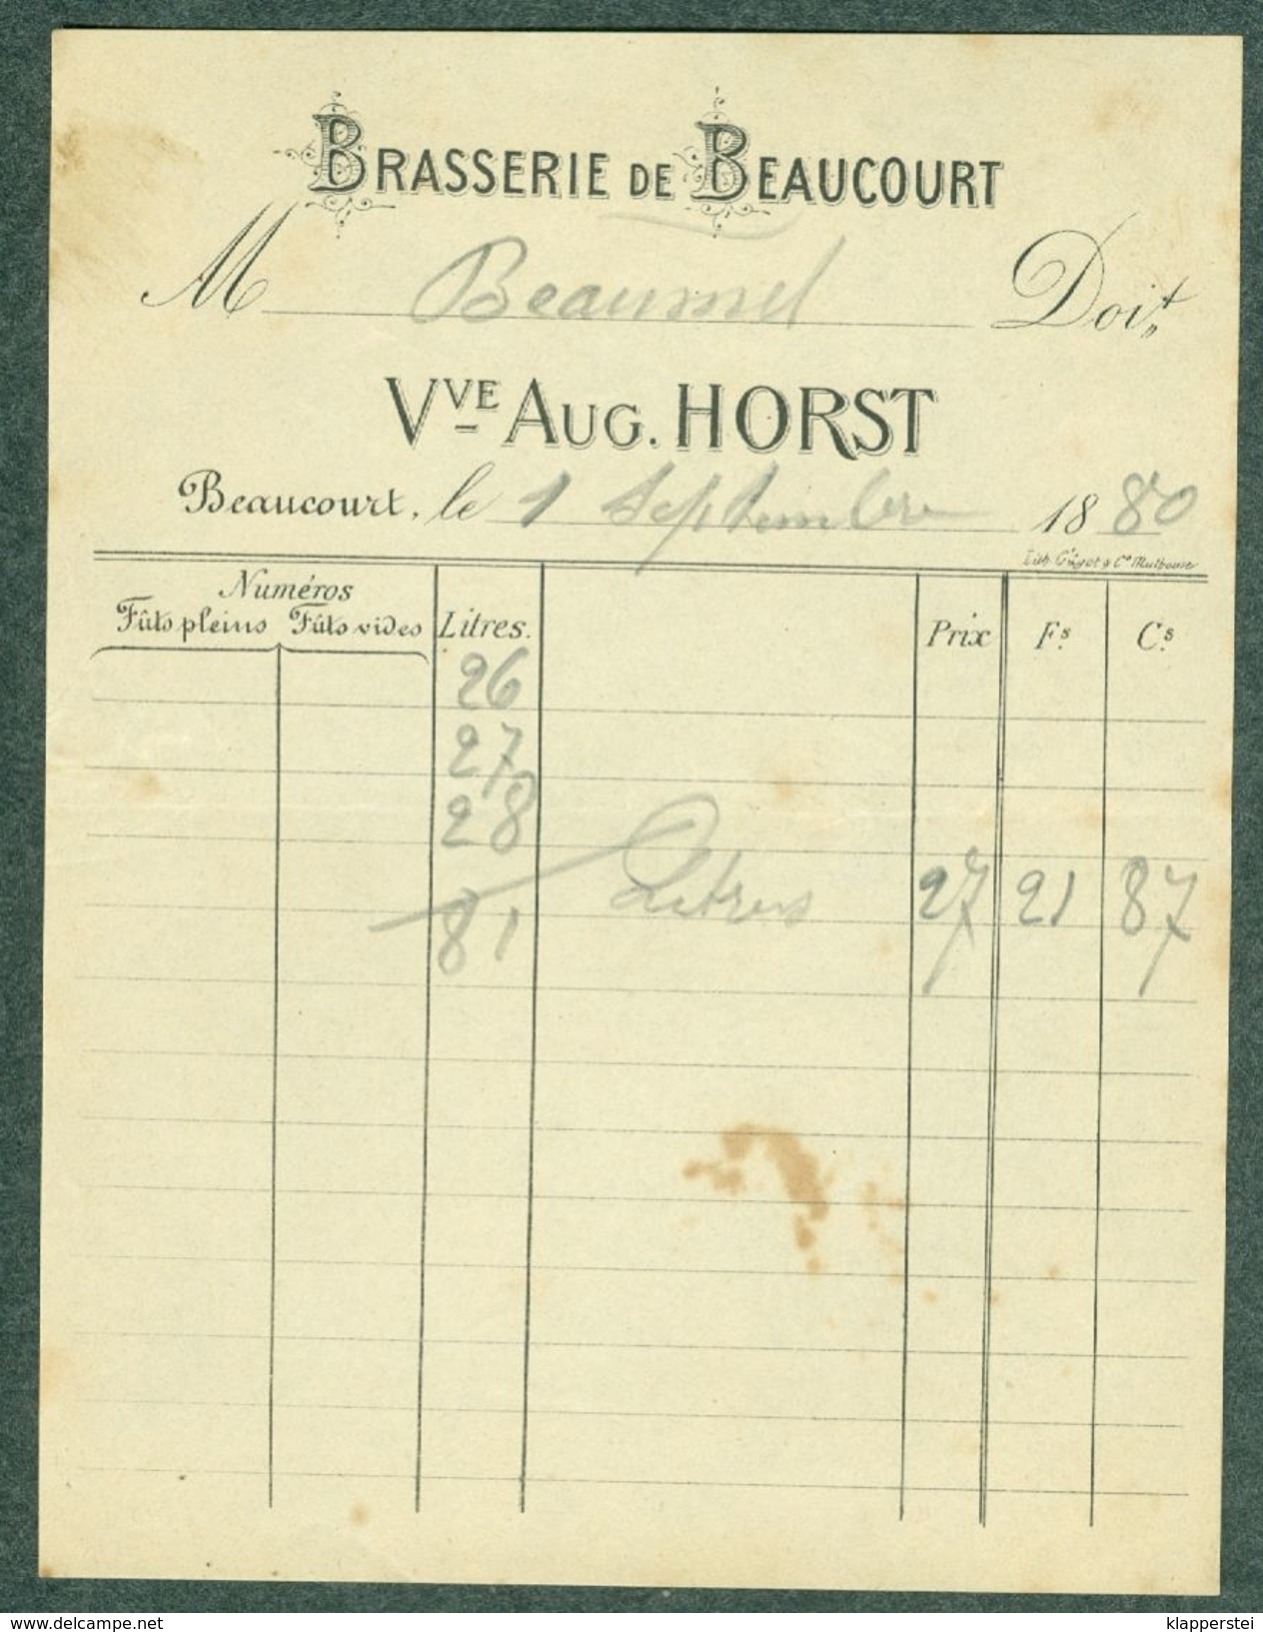 BRASSERIE DE BEAUCOURT
M Beaumel Doit,,
VVE AUG. HORST
Beaucourt, le 1 Septembre 1880
Lith. Guyot & Cie Mulhouse
Numéros
Fûts pleins Fûts vides Litres. Prix Fs. Cs.
26
27
28
81 Litres 27 21 87
www.delcampe.net klapperstei